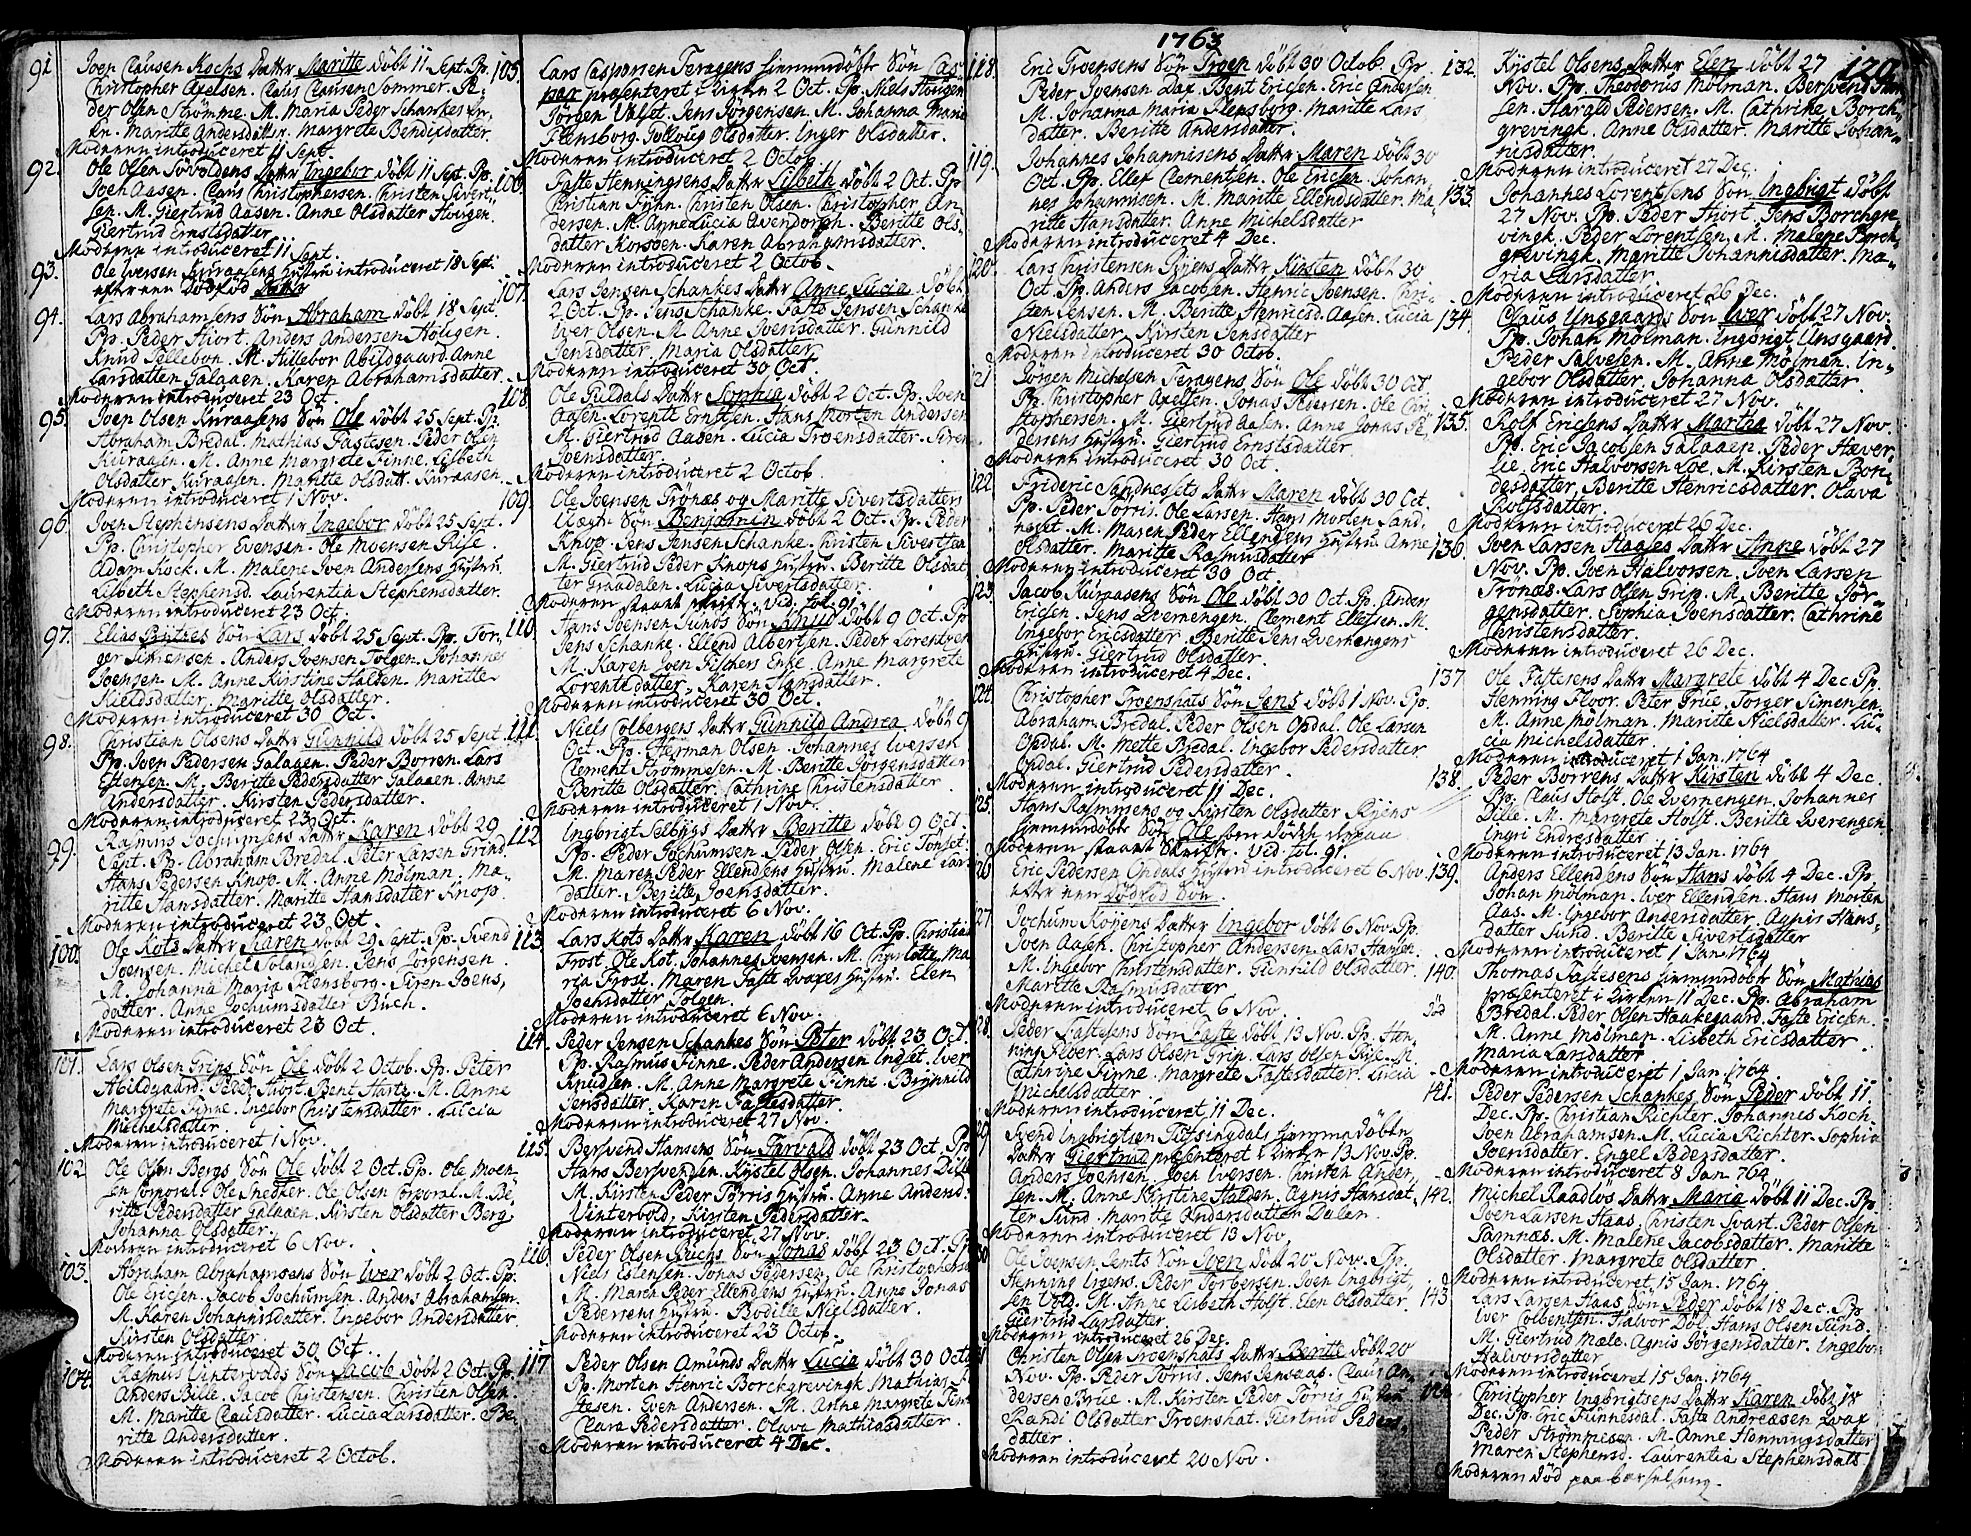 1763
129
91. Joen Clausen Kochs Datter Maritte døbt 11 Sept. Pp.
Christopher Axelsen. Claus Clausen Sommer. Pe-
der Olsen Strömme. M. Maria Peder Schankes En-
ke. Maritte Andersdatter. Margrete Bendixdatter.
Moderen introduceret 11 Sept.
92. Ole Olsen Sövoldens Datter Ingebor döbt 11 Sept. Pp.
Joen Aasen. Claus Christophersen. Christen Sivert-
sen. M. Giertrud Aasen. Anne Olsdatter Hougen.
Giertrud Ernstsdatter
Moderen introduceret 11 Sept.
93. Ole Iversen Kuraasens Hustru introduceret 18 Sept.
efter een Dödföd Datter
94. Lars Abrahamsens Sön Abraham döbt 18 Sept.
Pp. Peder Hiort. Anders Andersen Hougen.
Knud Pellebon. M. Hillebor Abildgaard. Anne
Larsdatter Galaaen. Karen Abrahamsdatter.
Moderen introduceret 23 Oct.
95. Joen Olsen Kuraasens Sön Ole döbt 25 Sept. Pp.
Abraham Bredal. Mathias Fastesen. Peder Olsen
Kuraasen. M. Anne Margrete Finne. Lisbeth
Olsdatter Kuraasen. Maritte Olsdatt. Kuraasen.
Moderen introduceret 1 Nov.
96. Joen Stephensens Datter Ingebor döbt 25 Sept.
Pp. Christopher Evensen. Ole Moensen Rise.
Adam Kock. M. Malene Joen Andersens Hustru.
Lisbeth Stephensd. Laurentia Stephensdatter.
Moderen introduceret 23 Oct.
97. Elias Sön Lars döbt 25 Sept. Pp. Tor-
ger Simensen. Anders Joensen Tolgen. Johannes
Joensen. M. Anne Kirstine Halden. Maritte
Nielsdatter. Maritte Olsdatter.
Moderen introduceret 30 Oct.
98. Christian Olsens Datter Gunnild döbt 25 Sept.
Pp. Joen Pedersen Galaaen. Peder Borren. Lars
Estensen. M. Beritte Pedersdatter Galaaen. Anne
Andersdatter. Kirsten Pedersdatter.
Moderen introduceret 23 Oct.
99. Rasmus Jochumsens Datter Karen döbt 29
Sept. Pp. Abraham Bredal. Peter Larsen Grind.
Hans Pedersen Knop. M. Anne Mölman. Ma-
ritte Hansdatter. Maritte Hansdatter Knop.
Moderen introduceret 23 Oct.
100. Ole Kots Datter Karen döbt 29 Sept. Pp. Svend
Joensen. Michel Solandsen. Jens Jörgensen.
M. Johanna Maria Flensborg. Siren Joens,
datter. Anne Jochumsdatter Buch.
Moderen introduceret 23 Oct.
101. Lars Olsen Grips Sön Ole döbt 2 Octob. Pp. Peter
Abildgaard. Peder Hiort. Bent Harts. M. Anne
Margrete Finne. Ingebor Christensdatter. Lucia
Michelsdatter.
Moderen introduceret 1 Nov.
102. Ole Olsen Bergs Sön Ole döbt 2 Oct. Pp. Ole Moen-
sen Corporal. Ole Snedker. Ole Olsen Corporal. M. Be-
ritte Pedersdatter Galaaen. Kirsten Olsdatter Berg.
Johanna Olsdatter.
Moderen introduceret 6 Nov.
103. Abraham Abrahamsens Sön Iver döbt 2 Oct. Pp.
Ole Ericsen. Jacob Jochumsen. Anders Abrahamsen.
M. Karen Johannisdatter. Ingebor Andersdatter.
Kirsten Olsdatter.
Moderen introduceret 30 Oct.
104. Rasmus Vintervolds Sön Jacob döbt 2 Oct. Pp.
Anders Bille. Jacob Christensen. Christen Olsen.
M. Maritte Clausdatter. Lucia Larsdatter. Be-
ritte Andersdatter.
Moderen introduceret 2 Octob.
105. Lars Caspersen Feragens hiemmedöbte Sön Cas-
par præsenteret i Kirken 2 Oct. Pp. Niels Hougen
Jörgen Valset. Jens Jörgensen. M. Johanna Maria
Flensborg. Gollvig Olsdatter. Inger Olsdatter.
Moderen introduceret 2 Octob.
106. Faste Henningsens Datter Lisbeth döbt 2 Oct. Pp.
Christian Finn. Christen Olsen. Christopher An-
dersen. M. Anne Lucia Avendorph. Beritte Ols-
datter Korsoen. Karen Abrahamsdatter.
Moderen introduceret 2 Octob.
107. Lars Jensen Schankes Datter Anne Lucia döbt
2 Oct. Pp. Jens Schanke. Faste Jensen Schanke
Iver Olsen. M. Anne Joensdatter. Gunnild
Jensdatter. Maria Olsdatter.
Moderen introduceret 30 Oct.
108. Ole Fuldals Datter Sophia döbt 2 Oct. Pp. Joen
Aasen. Lorente Ernstsen. Hans Morten Andersen
M. Giertrud Aasen. Lucia Troensdatter. Siren
Joensdatter.
Moderen introduceret 2 Octob.
109. Ole Joensen Trönæs og Maritte Sivertsdatters
Uægte Sön Benjamin döbt 2 Oct. Pp. Peder
Knop. Jens Jensen Schanke. Christen Sivertsen
M. Giertrud Peder Knops Hustru. Beritte Olsdat-
ter Graadalen. Lucia Sivertsdatter.
Moderen staaet skrift. Vid. fol. 91.
110. Hans Joensen Sunds Sön Knud döbt 9 Oct. Pp.
Jens Schanke. Ellend Albertsen. Peder Lorentsen
M. Karen Joen Fischers Enke. Anne Margrete
Lorentsdatter. Karen Hansdatter.
Moderen introduceret 30 Oct.
111. Niels Colbergs Datter Gunnild Andrea döbt 9
Oct. Pp. Herman Olsen. Johannes Iversen
Clement Strömmesen. M. Beritte Jörgensdatter
Beritte Olsdatter. Cathrine Christensdatter.
Moderen introduceret 1 Nov.
112. Ingbrigt Selbyes Datter Beritte döbt 9 Oct.
Pp. Peder Jochumsen. Peder Olsen. Eric Tonset.
M. Maren Peder Ellendsens Hustru. Malene Lars
datter. Beritte Joensdatter.
Moderen introduceret 6 Nov.
113. Lars Kots Datter Karen döbt 16 Oct. Pp. Christian
Frost. Ole Kot. Johannes Svensen. M. Charlotte Ma-
ria Frost. Maren Faste Hustru. Elen
Joensdatter Tolgen.
Moderen introduceret 6 Nov.
114. Peder Jensen Schankes Sön Peter döbt 23 Oct.
Pp. Rasmus Finne. Peder Andersen Indset. Iver
Knudsen. M. Anne Margrete Finne. Brynnild
Jensdatter. Karen Fastesdatter.
Moderen introduceret 27 Nov.
115. Bersvend Hansens Sön Farvald döbt 23 Oct. Pp.
Hans Bersvendsen. Kystel Olsen. Johannes Dille
M. Kirsten Peder Törris Hustru. Anne Andersd.
Vintervold. Kirsten Pedersdatter.
Moderen introduceret 27 Nov.
116. Peder Olsen Buchs Sön Jonas döbt 23 Oct. Pp.
Niels Estensen. Jonas Pedersen. Ole Christophersen
M. Maren Peder Ellendsens Hustru. Anne Jonas
Pedersens Hustru. Bodille Nielsdatter.
Moderen introduceret 23 Octob.
117. Peder Olsen Amunds Datter Lucia döbt 30 Octob
Pp. Morten Henric Borckgrevingk. Mathias
tesen. Even Andersen. M. Anne Margrete Finne
Clara Pedersdatter. Olava Mathiasdatter.
Moderen introduceret 4 Dec.
118. Eric Troensens Sön Troen döbt 30 Octob. Pp.
Peder Svensen Dal. Bent Ericsen. Eric Andersen
M. Johanna Maria Flensborg. Maritte Lars
datter. Beritte Andersdatter.
119. Johannes Johannisens Datter Maren döbt 30
Oct. Pp. Ellef Clementsen. Ole Ericsen. Johan,
nes Johannisen. M. Maritte Ellendsdatter. Ma-
ritte Hansdatter. Anne Michelsdatter
Moderen introduceret 4 Dec.
120. Lars Christensen Datter Kirsten döbt 30
Oct. Pp. Anders Jacobsen. Henric Joensen. Chri-
sten Jensen. M. Beritte Henricsd. Aasen. Lucia
Nielsdatter. Kirsten Jensdatter
Moderen introduceret 30 Octob.
121 Jörgen Michelsen Feragens Sön Ole döbt 30 Oct
Pp. Christopher Axelsen. Jonas Pedersen. Ole Chri-
stophersen. M. Giertrud Aasen. Anne Jonas Pe-
dersens Hustru. Giertrud Ernstsdatter.
Moderen introduceret 30 Oct.
122 Frideric Sandnessets Datter Maren döbt 30 Oct.
Pp. Peder Torris. Ole Larsen. Hans Morten Sand-
neset. M. Maren Peder Ellendsens Hustru. Anne
Olsdatter. Maritte Rasmusdatter
Moderen introduceret 30 Oct.
123. Jacob Kuraasens Sön Ole döbt 30 Oct. Pp. Anders
Ericsen. Jens Qvernengen. Clement Ellefsen. M.
Ingebor Ericsdatter. Beritte Jens Qvernengens
Hustru. Giertrud Olsdatter.
Moderen introduceret 4 Dec.
124. Christopher Troenshats Sön Jens döbt 1 Nov. Pp.
Abraham Bredal. Peder Olsen Opdal. Ole Larsen
Opdal. M. Mette Bredal. Ingebor Pedersdatter
Opdal. Giertrud Pedersdatter.
Moderen introduceret 11 Dec.
125. Hans Rasmusens og Kirsten Olsdatter Ryens
hiemmedöbte Sön Ole som döde
Moderen staaet Skrifte. Vid. fol. 91.
126 Eric Pedersen Opdals Hustru introduceret 6 Nov.
efter een Dödföd Sön.
127. Jochum Koyens Datter Ingebor döbt 6 Nov. Pp.
Joen Aasen. Christopher Andersen. Lars Hansen.
M. Ingebor Christensdatter. Gunnild Olsdatter.
Maritte Rasmusdatter
Moderen introduceret 6 Nov.
128. Peder Fastesens Sön Faste döbt 13 Nov. Pp. Hen-
ning Floer. Lars Olsen Grip. Lars Olsen Rise. M.
Cathrine Finne. Margrete Fastesdatter. Lucia
Michelsdatter.
Moderen introduceret 11 Dec.
129 Svend Ingbrigtsen Tufsingdals hiemmedöbte
Datter Giertrud præsenteret i Kirken 13 Nov. Pp.
Anders Joensen. Joen Iversen. Christen Ander,
sen. M. Anne Kirstine Halden. Agnis Hansdat-
ter Sund. Maritte Andersdatter Dalen.
Moderen introduceret 13 Nov.
130 Ole Joensen Jemts Sön Joen döbt 20 Nov. Pp.
Henning Irgens. Peder Torbersen. Joen Ingbrigt,
sen Vold. M. Anne Lisbeth Holst. Elen Olsdatter.
Giertrud Larsdatter
Moderen introduceret 26 Dec.
131 Christen Olsen Troenshats Datter Beritte döbt 20
Nov. Pp. Peder Törris. Jens Jensaas. Claus An-
dersen Brue. M. Kirsten Peder Törris Hustru
Randi Olsdatter Troenshat. Giertrud Peders,
datter
Moderen introduceret 20 Nov.
132. Kystel Olsens Datter Elen döbt 27
Nov. Pp. Theodorus Mölman. Bersvend Han
sen. Harald Pedersen. M. Cathrine Borch,
grevingk. Anne Olsdatter. Maritte Johan-
nisdatter.
Moderen introduceret 27 Dec.
133. Johannes Lorentsens Sön Ingbrigt döbt
27 Nov. Pp. Peder Hiort. Jens Borchgre
vingk. Peder Lorentsen. M. Malene Borch,
grevingk. Maritte Johannisdatter. Ma-
ria Larsdatter.
Moderen introduceret 26 Dec.
134. Claus Unsgaards Sön Iver döbt 27 Nov.
Pp. Johan Mölman. Ingbrigt Unsgaard.
Peder Salvesen. M. Anne Mölman. In-
gebor Olsdatter. Johanna Olsdatter.
Moderen introduceret 27 Nov.
135. Rolf Ericsens Datter Martha döbt 27 Nov.
Pp. Eric Jacobsen Galaaen. Peder Hæver-
lie. Eric Halvorsen Loe. M. Kirsten Bon-
desdatter. Beritte Henricsdatter. Olava
Rolfsdatter.
Moderen introduceret 26 Dec.
136. Joen Larsen Haases Datter Anne döbt 27
Nov. Pp. Joen Halvorsen. Joen Larsen
Trönæs. Lars Olsen Grip. M. Beritte Jör-
gensdatter. Sophia Joensdatter. Cathrine
Christensdatter.
Moderen introduceret 26 Dec.
137. Ole Fasterens Datter Margrete döbt 4 Dec. Pp.
Henning Floor. Peter Grue. Torger Simensen.
M. Anne Mölman. Maritte Nielsdatter. Lu-
cia Michelsdatter.
Moderen introduceret 1 Jan. 1764
138. Peder Borrens Datter Kirsten döbt 4 Dec.
Pp. Claus Holst. Ole Qvernengen. Johannes
Dille. M. Margrete Holst. Beritte Qverengen
Ingri Endresdatter
Moderen introduceret 13 Jan. 1764
139. Anders Ellendsens Sön Hans döbt 4 Dec. Pp.
Johan Mölman. Iver Ellendsen. Hans Morten
Aas. M. Ingebor Andersdatter. Agnis Hans-
datter Sund. Beritte Sivertsdatter
Moderen introduceret 1 Jan. 1764
140. Thomas Fastesens hiemmedöbte Sön Mathias
död præsenteret i Kirken 11 Dec. Pp. Abraham
Bredal. Peder Olsen Haakegaard. Faste Ericsen.
M. Anne Mölman. Lisbeth Ericsdatter.
Maria Larsdatter
Moderen introduceret 1 Jan. 1764.
141. Peder Pedersen Schankes Sön Peder döbt 11
Dec. Pp. Christian Richter. Johannes Koch.
Joen Abrahamsen. M. Lucia Richter. Sophia
Joensdatter. Engel Pedersdatter.
Moderen introduceret 8 Jan. 1764
142. Michel Raadlös Datter Maria döbt 11 Dec. Pp.
Joen Larsen Haas. Christen Svart. Peder Olsen
Tamnæs. M. Malene Jacobsdatter. Maritte
Olsdatter. Margrete Olsdatter
Moderen introduceret 15 Jan. 1764
143 Lars Larsen Haas Sön Peder döbt 18 Dec. Pp.
Iver Colbentsen. Halvor Döl. Hans Olsen Sund.
M. Giertrud Mæle. Agnis Jörgensdatter. Ingebor
Halvorsdatter
Moderen introduceret 15 Jan. 1764
144. Christopher Ingbrigtsens Datter Karen döbt 18
Dec. Pp. Eric Funnesdal. Faste Andreæsen
Peder Strömmesen. M. Anne Henningsdatter
Maren Stephensd. Laurentia Stephensdatt.
Moderen död paa barselseng.